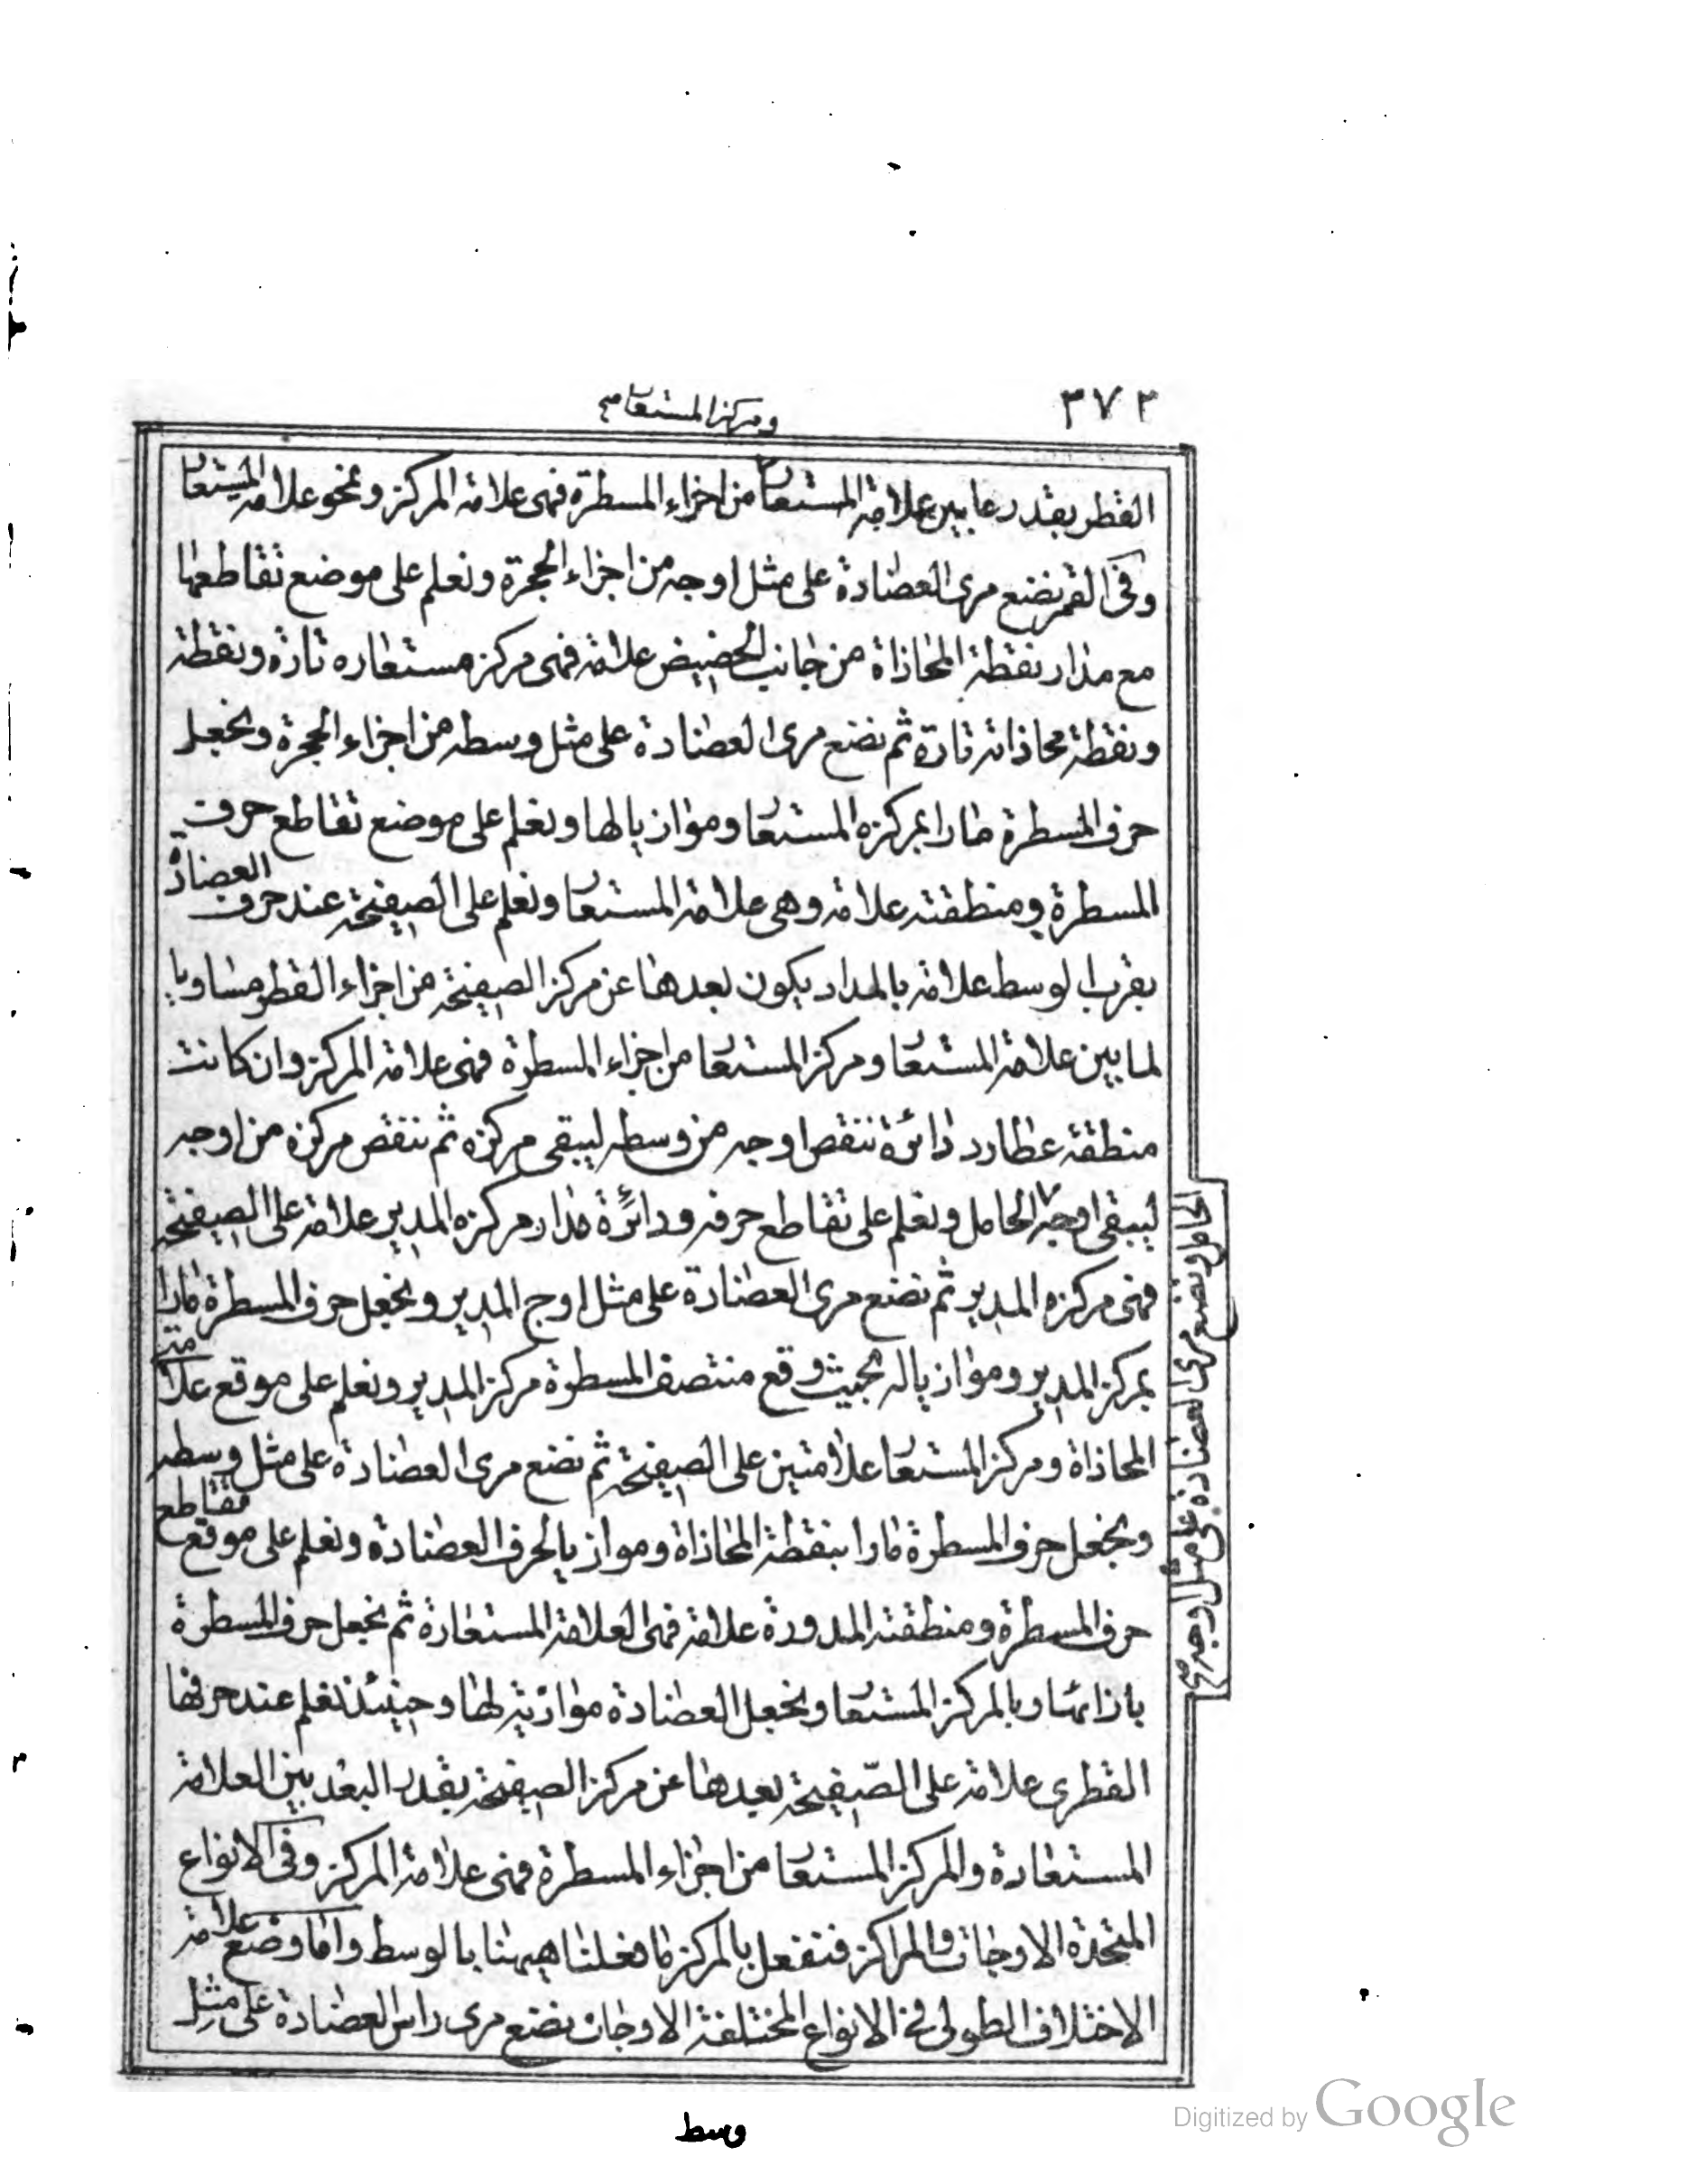 ٣٧٢
ومركز المستعا صح
القطر بقدر ما بين علامة المستعا من اجزاء المسطرة فهى علامة المركز ونمحو علامة المستعا
وفى القمر نضع مرى العضادة على مثل اوجه من اجزاء الحجرة ونعلم على موضع تقاطعها
مع مدار نقطة المحاذاة من جانب الحضيض علامة فهى مركز مستعاره تارة ونقطة
ونقطة محاذاته تارة ثم نضع مرى العضادة على مثل وسطه من اجزاء الحجرة ونجعل
حرف المسطرة مارا بمركزه المستعا وموازيا لها ونعلم على موضع تقاطع حرف
المسطرة ومنطقته علامة وهى علامة المستعا ونعلم على الصفيحة عند حرف العضادة
بقرب الوسط علامة بالمداد يكون بعدها عن مركز الصفيحة من اجزاء القطر مساويا
لما بين علامة المستعا ومركز المستعا من اجزاء المسطرة فهى علامة المركز وان كانت
منطقة عطارد دائرة ننقص اوجه من وسطه ليبقى مركزه ثم ننقص مركزه من اوجه
ليبقى اوجه الحامل ونعلم على تقاطع حرفه ودائرة مدار مركزه المدير علامة على الصفيحة
الحامل ونضع مرى العضادة على مثل اوجه صح
فهى مركزه المدير ثم نضع مرى العضادة على مثل اوج المدير ونجعل حرف المسطرة مارا
بمركز المدير وموازيا له بحيث وقع منتصف المسطرة مركز المدير ونعلم على موقع علامتى
المحاذاة ومركز المستعا علامتين على الصفيحة ثم نضع مرى العضادة على مثل وسطه
ونجعل حرف المسطرة مارا بنقطة المحاذاة وموازيا لحرف العضادة ونعلم على موقع تقاطع
حرف المسطرة ومنطقته المدورة علامة فهى العلامة المستعارة ثم نجعل حرف المسطرة
بازائها وبالمركز المستعا ونجعل العضادة موازية لها وحينئذ نعلم عند حرفها
القطرى علامة على الصفيحة بعدها عن مركز الصفيحة بقدر البعد بين العلامة
المستعارة والمركز المستعا من اجزاء المسطرة فهى علامة المركز وفى الانواع
المتحدة الاوجات والمراكز فنفعل بالمركز ما فعلنا ههنا بالوسط واما وضع علامة
الاختلاف الطولى فى الانواع المختلفة الاوجات نضع مرى راس العضادة على مثل
وسط
Digitized by Google